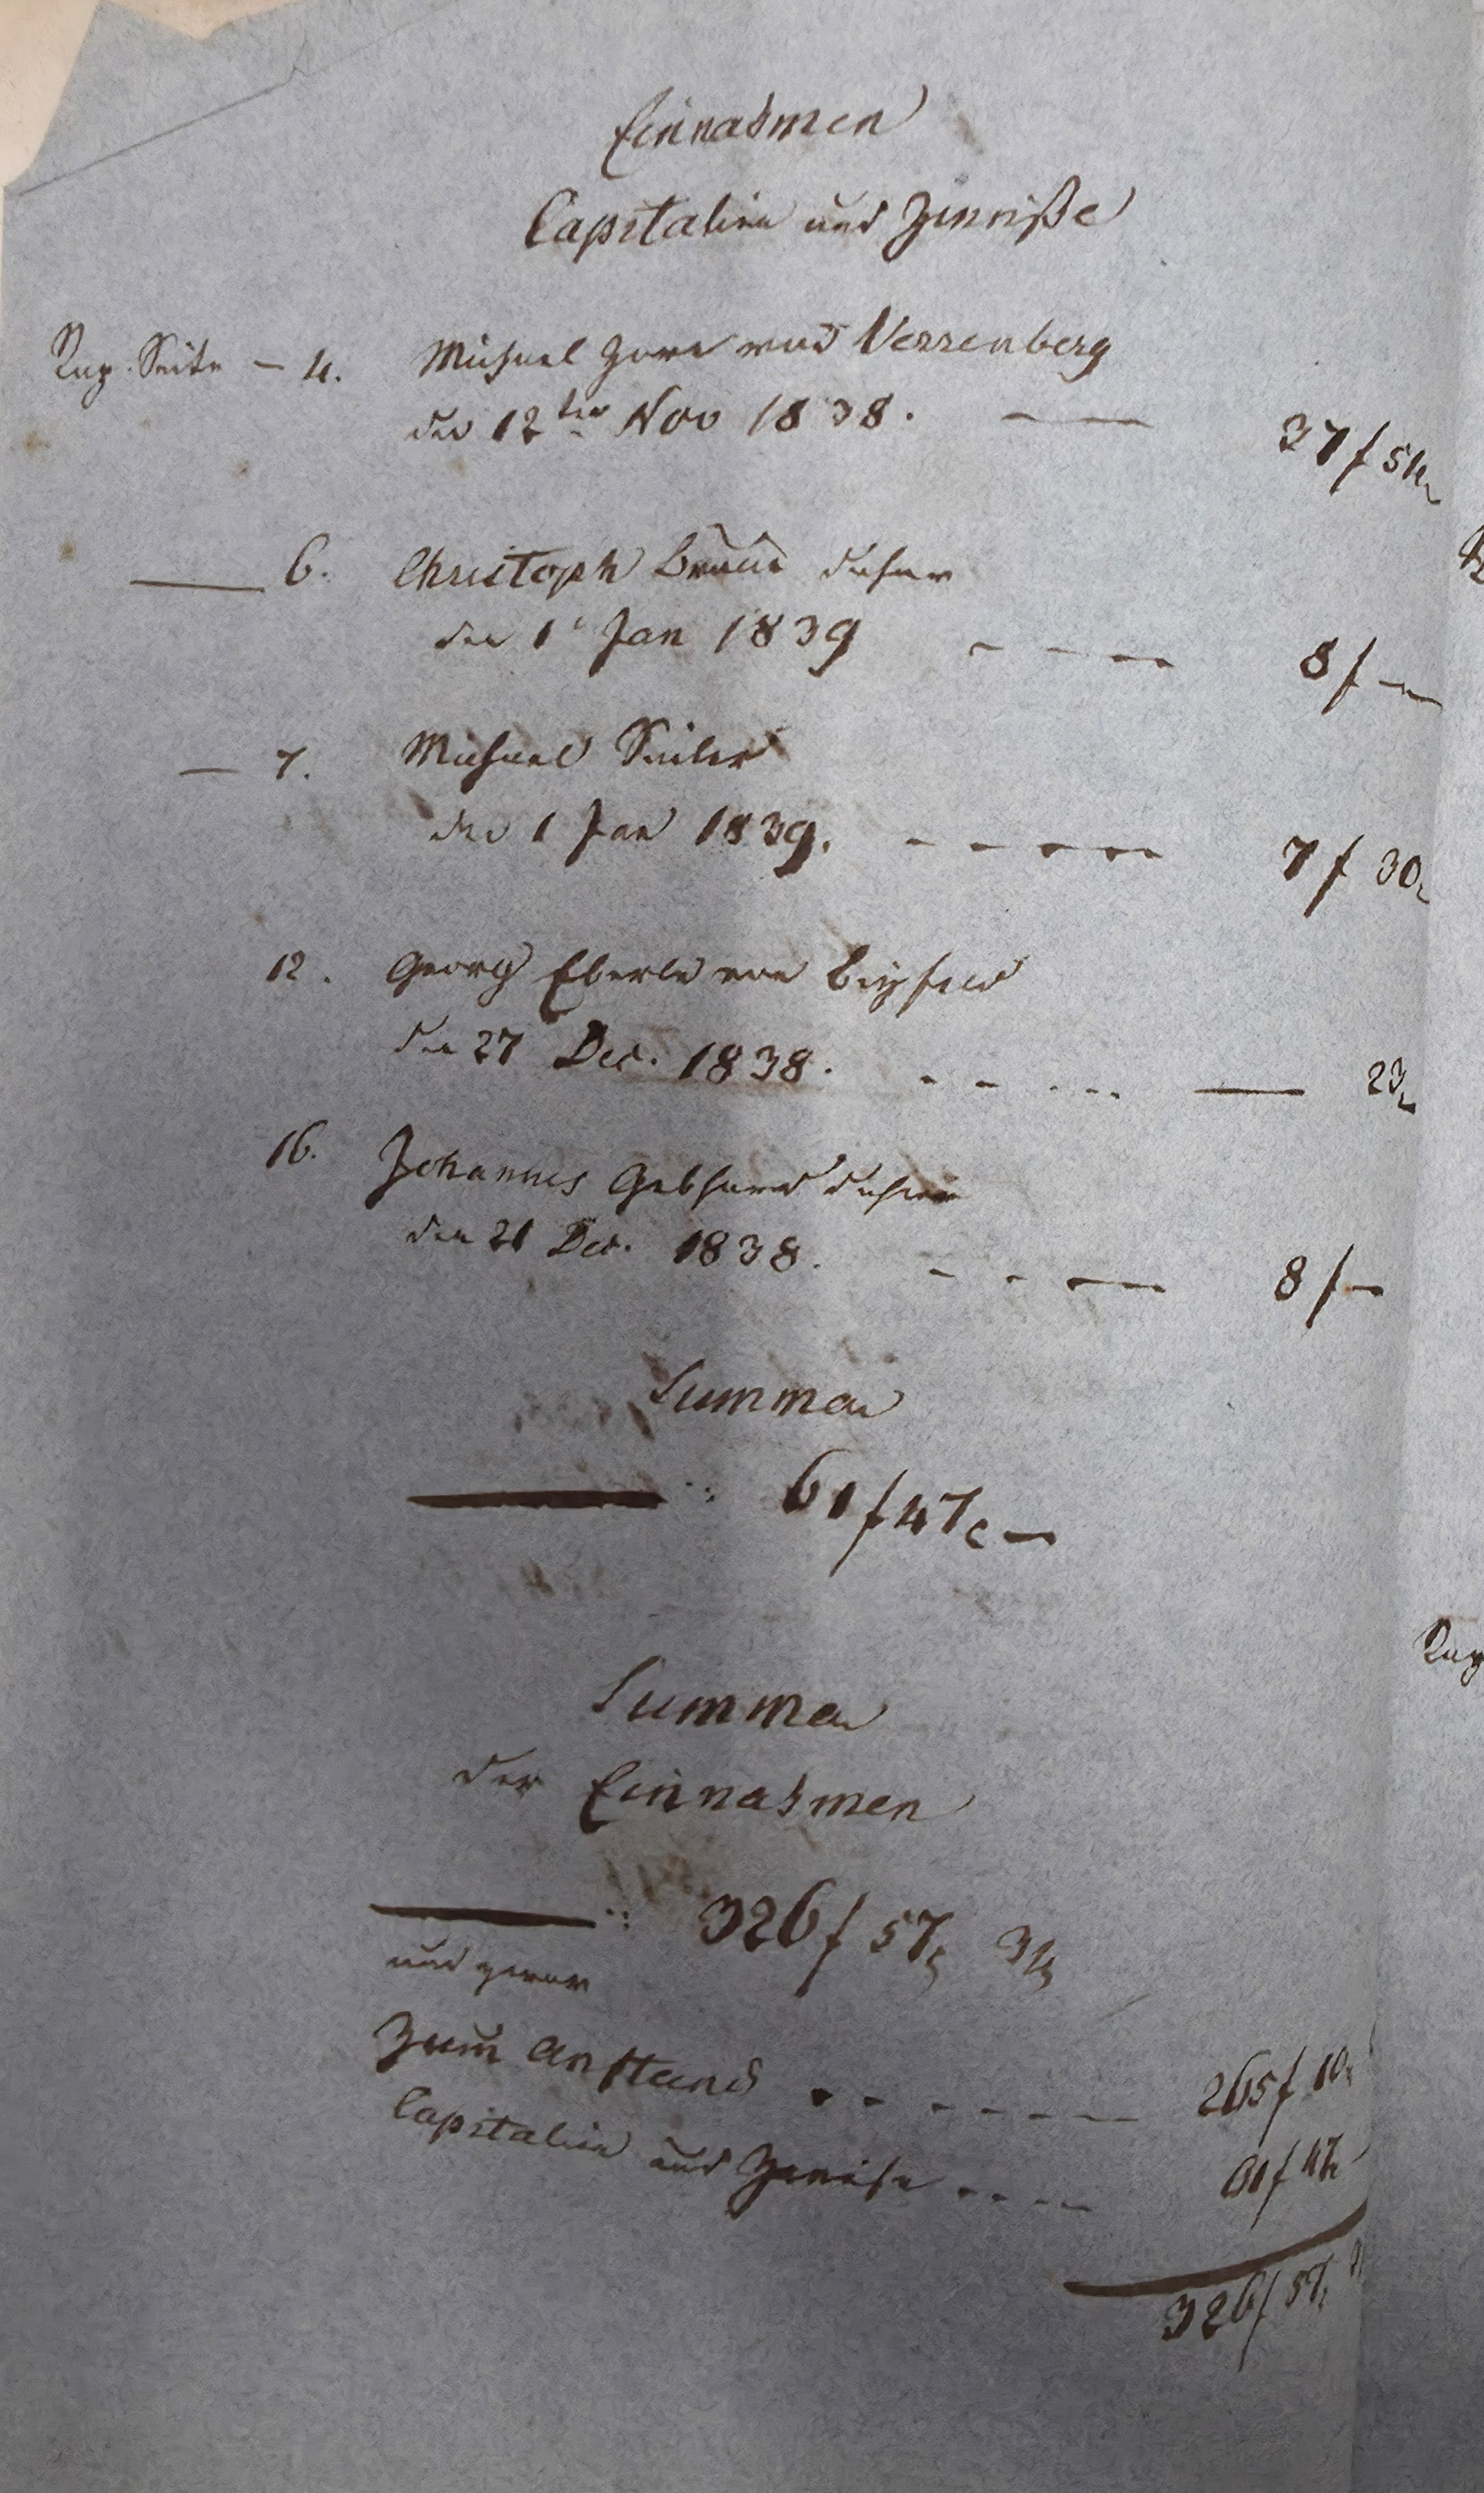 Einnahmen
Capitalien und Zinniße
Rup. Seite - 4. Michael Horn von Verrenberg
den 12ten Nov 1838. — 37 f 54
— 6. Christoph Braun daher
den 1t Jan 1839 - - - - 8 f —
— 7. Michael Seiler
den 1 Jan 1839. - - - - 7 f 30
12. Georg Eberle von
den 27 Dec. 1838. - - - - — 23
16. Johannes Gebhard daher
den 21 Dec. 1838. - - — 8 f —
Summa
— : 61 f 47 —
Summa
der Einnahmen
— : 326 f 57 3
und zwar
Zum Anstand - - - - - - 265 f 10
Capitalien und Zinniße - - - - 61 f 47
326 f 57